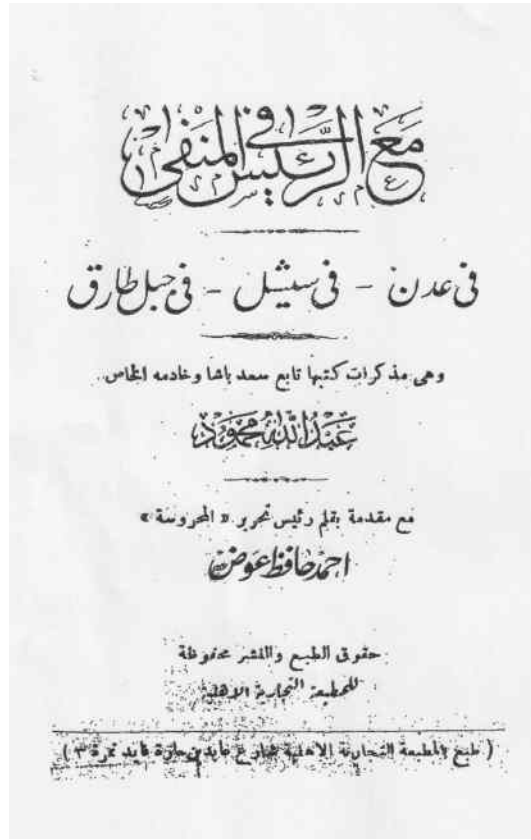 مع الرئيس في المنفى
في عدن - في سيشل - في جبل طارق
وهى مذكرات كتبها تابع سعد باشا وخادمه الخاص
عبد الله محمود
مع مقدمة بقلم رئيس تحرير « المحروسة »
احمد حافظ عوض
حقوق الطبع والنشر محفوظة
للمطبعة التجارية الاهلية
( طبع بالمطبعة التجارية الاهلية بشارع عابدين حارة فايد نمرة ٣ )